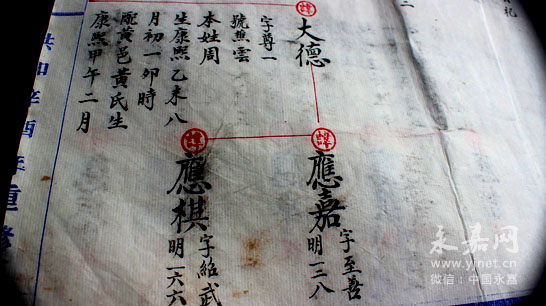 二
諱
大德
字尊一
號雲
本姓周
生康熙乙未八
月初一卯時
配黃邑黃氏生
康熙甲午二月
諱
應嘉
字至善
明一二八
諱
應棋
字紹武
明一六六
共和辛酉年重修
永嘉网
www.yjnet.cn
微信：中国永嘉